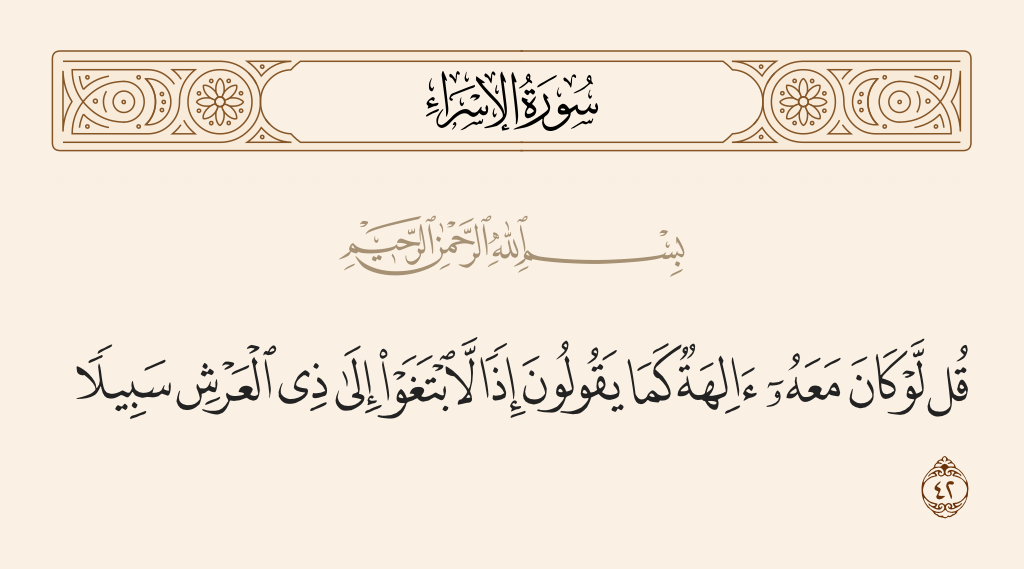 سُورَةُ الإِسْرَاءِ
بِسْمِ ٱللَّهِ ٱلرَّحْمَٰنِ ٱلرَّحِيمِ
قُل لَّوْ كَانَ مَعَهُۥٓ ءَالِهَةٌ كَمَا يَقُولُونَ إِذًا لَّٱبْتَغَوْا۟ إِلَىٰ ذِى ٱلْعَرْشِ سَبِيلًا
٤٢